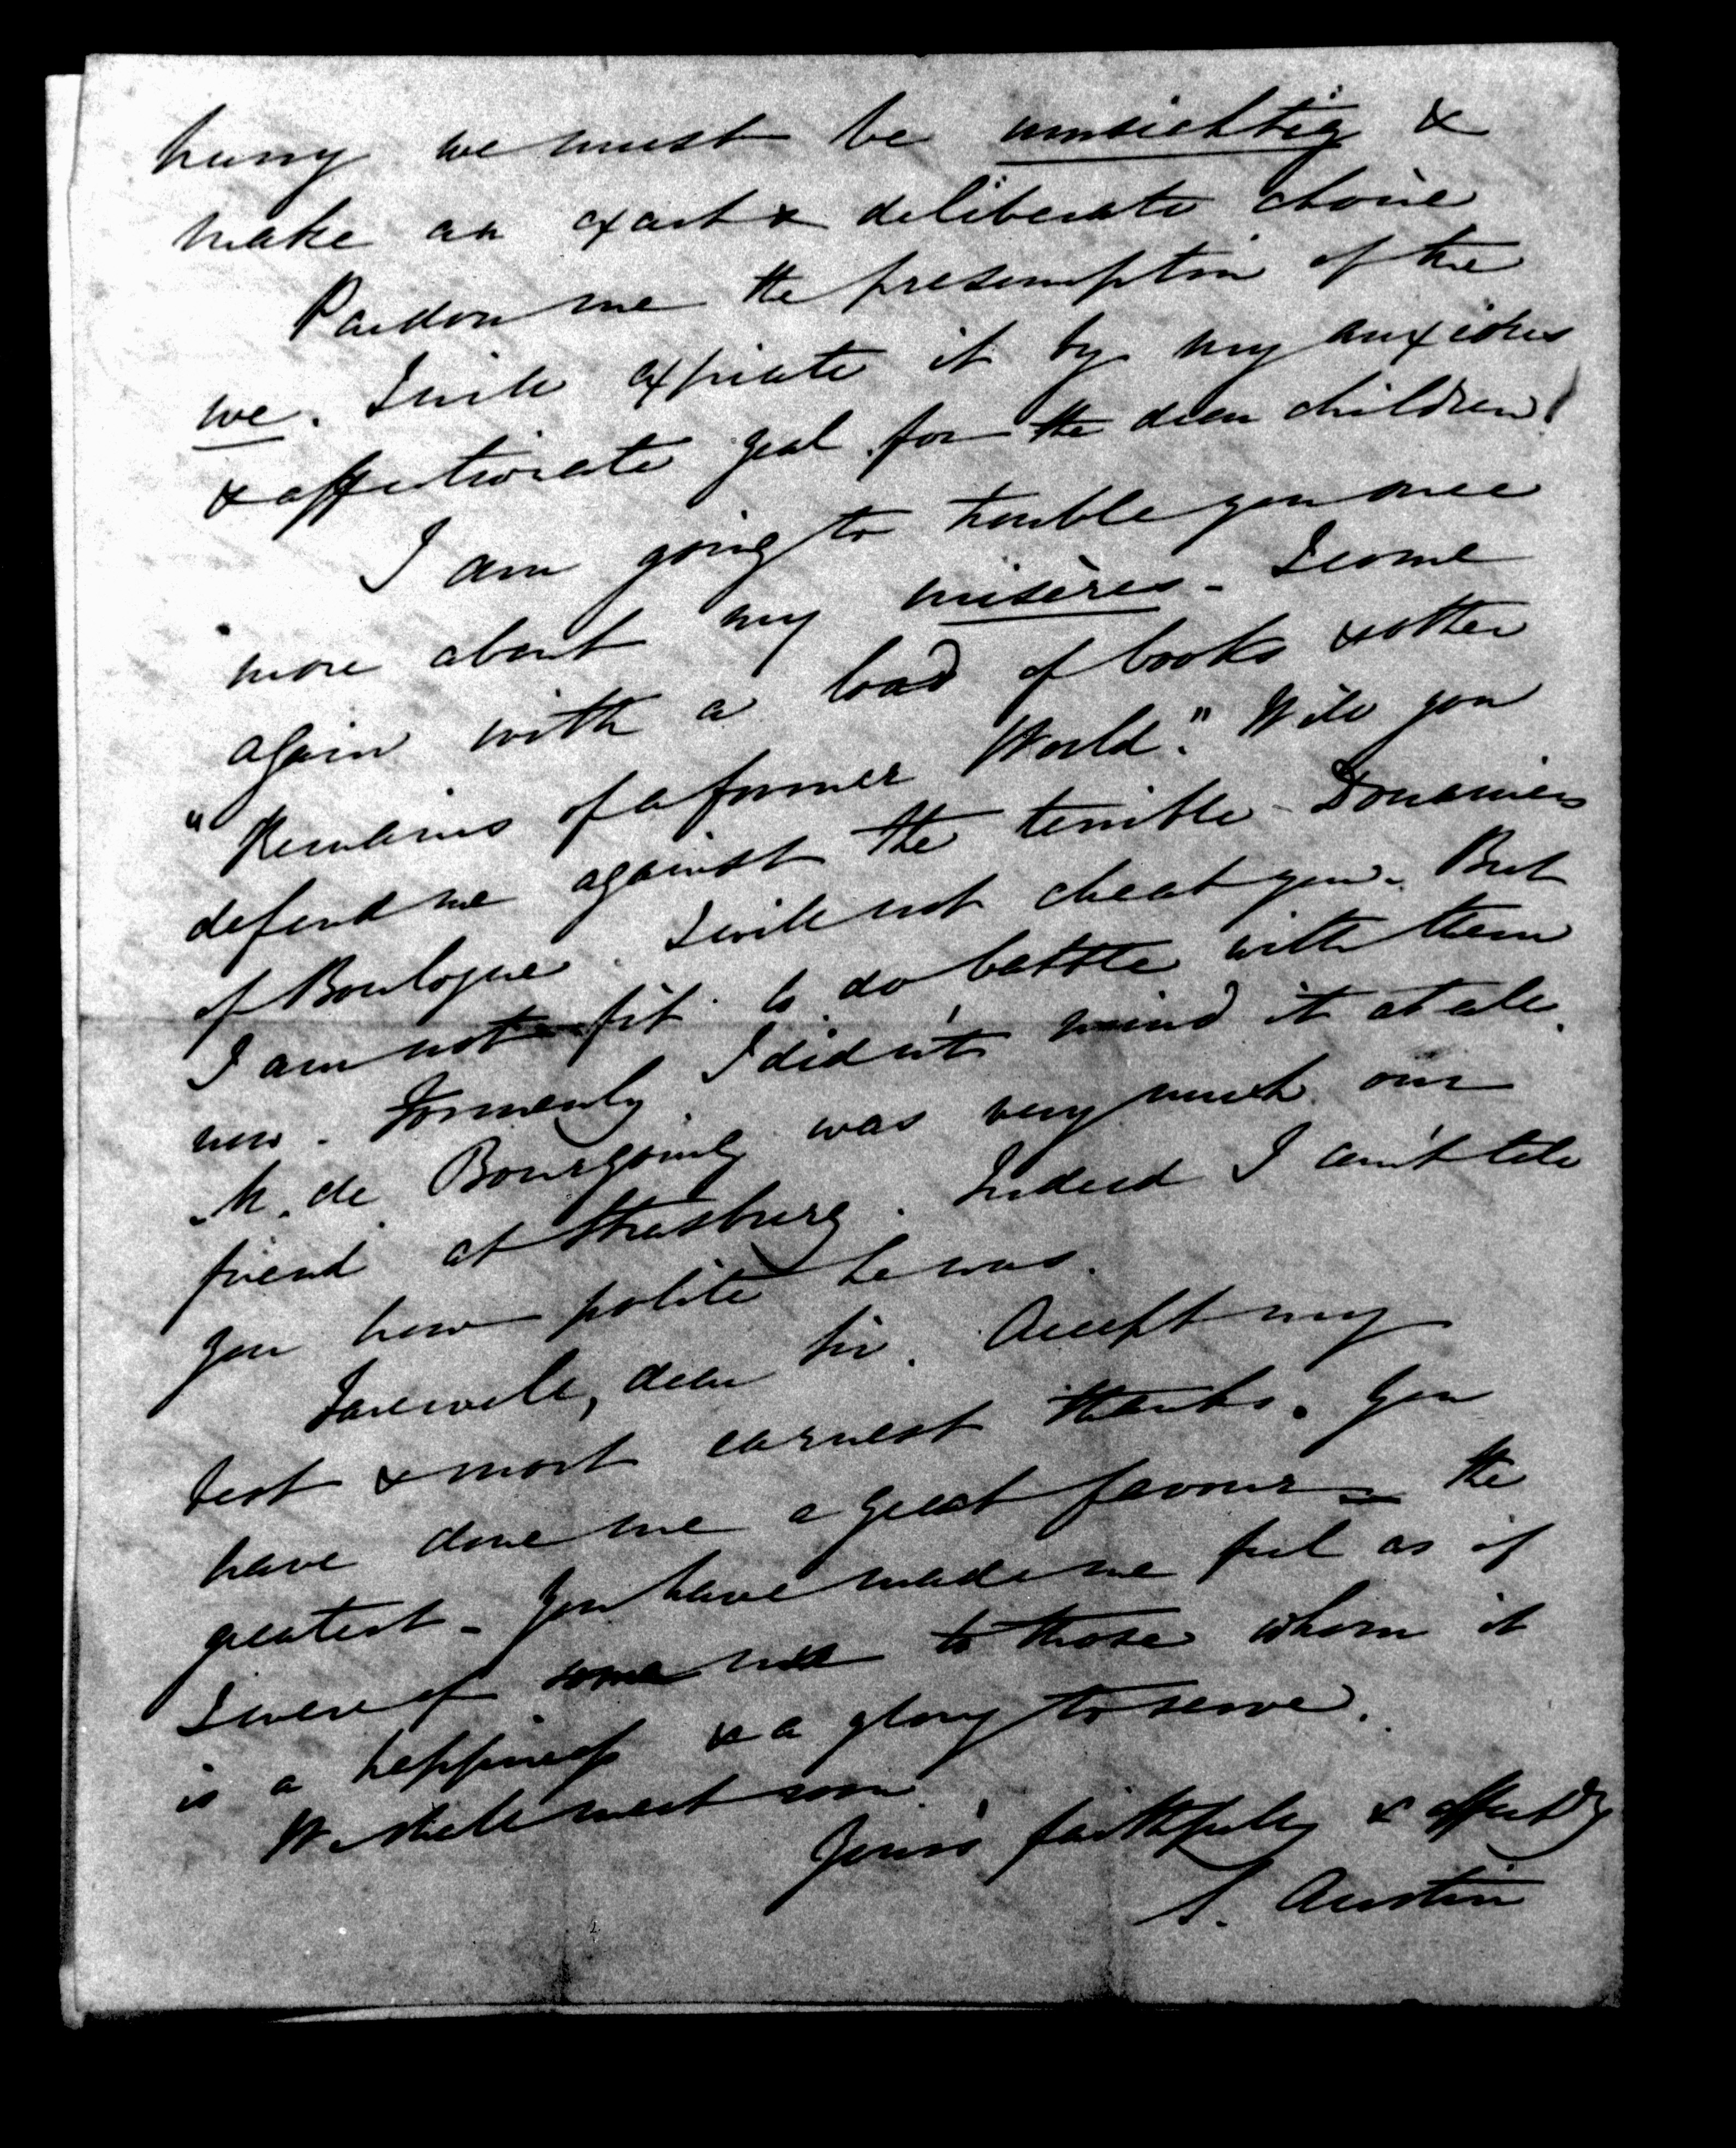 hurry we must be umsichtig &
make an exact & deliberate choice
Pardon me the presumption of the
we. I will expiate it by my anxious
& affectionate zeal for the dear children!
I am going to trouble you once
more about my misères - I come
again with a load of books & other
"Remains of a former World." Will you
defend me against the terrible Douaniers
of Boulogne. I will not cheat you. But
I am not fit to do battle with them
now. Formerly I didn't mind it at all.
M. de Bourgoing was very much our
friend at Strasburg. Indeed I can't tell
you how polite he was.
Farewell, dear Sir. Accept my
best & most earnest thanks. You
have done me a great favour - the
greatest - You have made me feel as if
I were of some use to those whom it
is a happiness & a glory to serve.
We shall meet soon
Yours faithfully & affectly
S. Austin